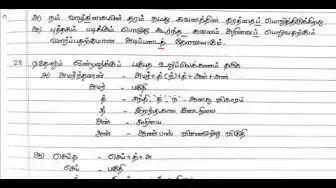 அ) நம் வாழ்க்கையின் தரம் நமது கவனத்தின் தரத்தைப் பொறுத்திருக்கிறது.
ஆ) புத்தகம் படிக்கும் பொழுது கூர்ந்த கவனம் அறிவைப் பெறுவதற்கும்
வாழ்வதற்குமான அடிப்படைத் தேவையாகும்.
28 ஏதேனும் ஒன்றனுக்குப் பகுபத உறுப்பிலக்கணம் தருக
அ) அமர்ந்தனன் - அமர்+த்(ந்)+த்+அன்+அன்
அமர் - பகுதி
த் - சந்தி, 'த்' 'ந்' ஆனது விகாரம்
த் - இறந்தகால இடைநிலை
அன் - சாரியை
அன் - ஆண்பால் வினைமுற்று விகுதி
ஆ) செய்த - செய்+த்+அ
செய் - பகுதி